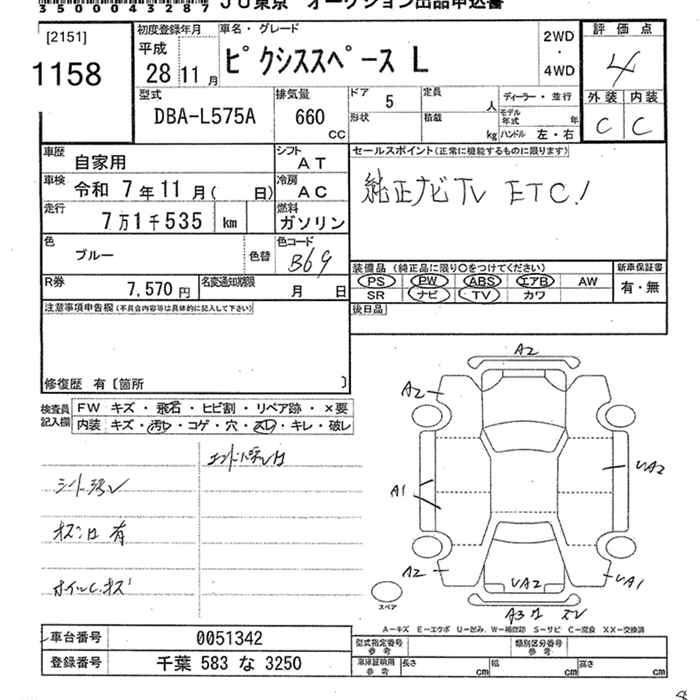 35000433287 JU東京 オークション出品申込書
[2151]
1158
初度登録年月
平成
28年11月
車名・グレード
ピクシススペース L
2WD
・
4WD
評価点
4
外装 内装
C C
型式
DBA-L575A
排気量
660
CC
ドア 5
形状
定員 人
積載 kg
ディーラー・並行
モデル年式 年
ハンドル 左・右
車歴 自家用
シフト AT
車検 令和 7年11月( 日)
冷房 AC
走行 7万1千535 km
燃料 ガソリン
色 ブルー
色替
色コード B69
R券 7,570円
名変通知期限 月 日
セールスポイント(正常に機能するものに限ります)
純正ナビTV ETC!
装備品(純正品に限り○をつけてください)
PS PW ABS エアB AW
SR ナビ TV カワ
新車保証書
有・無
後日品
注意事項申告欄(不具合内容等は具体的に記入して下さい)
修復歴 有〔箇所 〕
検査員記入欄
FW キズ・飛石・ヒビ割・リペア跡・×要
内装 キズ・汚レ・コゲ・穴・スレ・キレ・破レ
シート汚レ
ホイルC.キズ
A2
A2
A1
UA2
A2
UA2
UA1
スペア
A－キズ E－エクボ U－凹み W－補修跡 S－サビ C－腐食 XX－交換済
車台番号 0051342
登録番号 千葉 583 な 3250
型式指定番号 参考
類別区分番号 参考
車庫証明用 参考
長さ cm
幅 cm
高さ cm